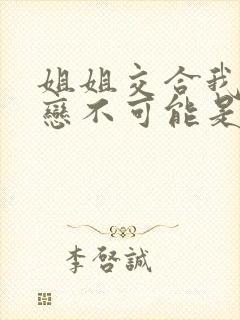 姐姐交合我
戀不可能是
李啓誠